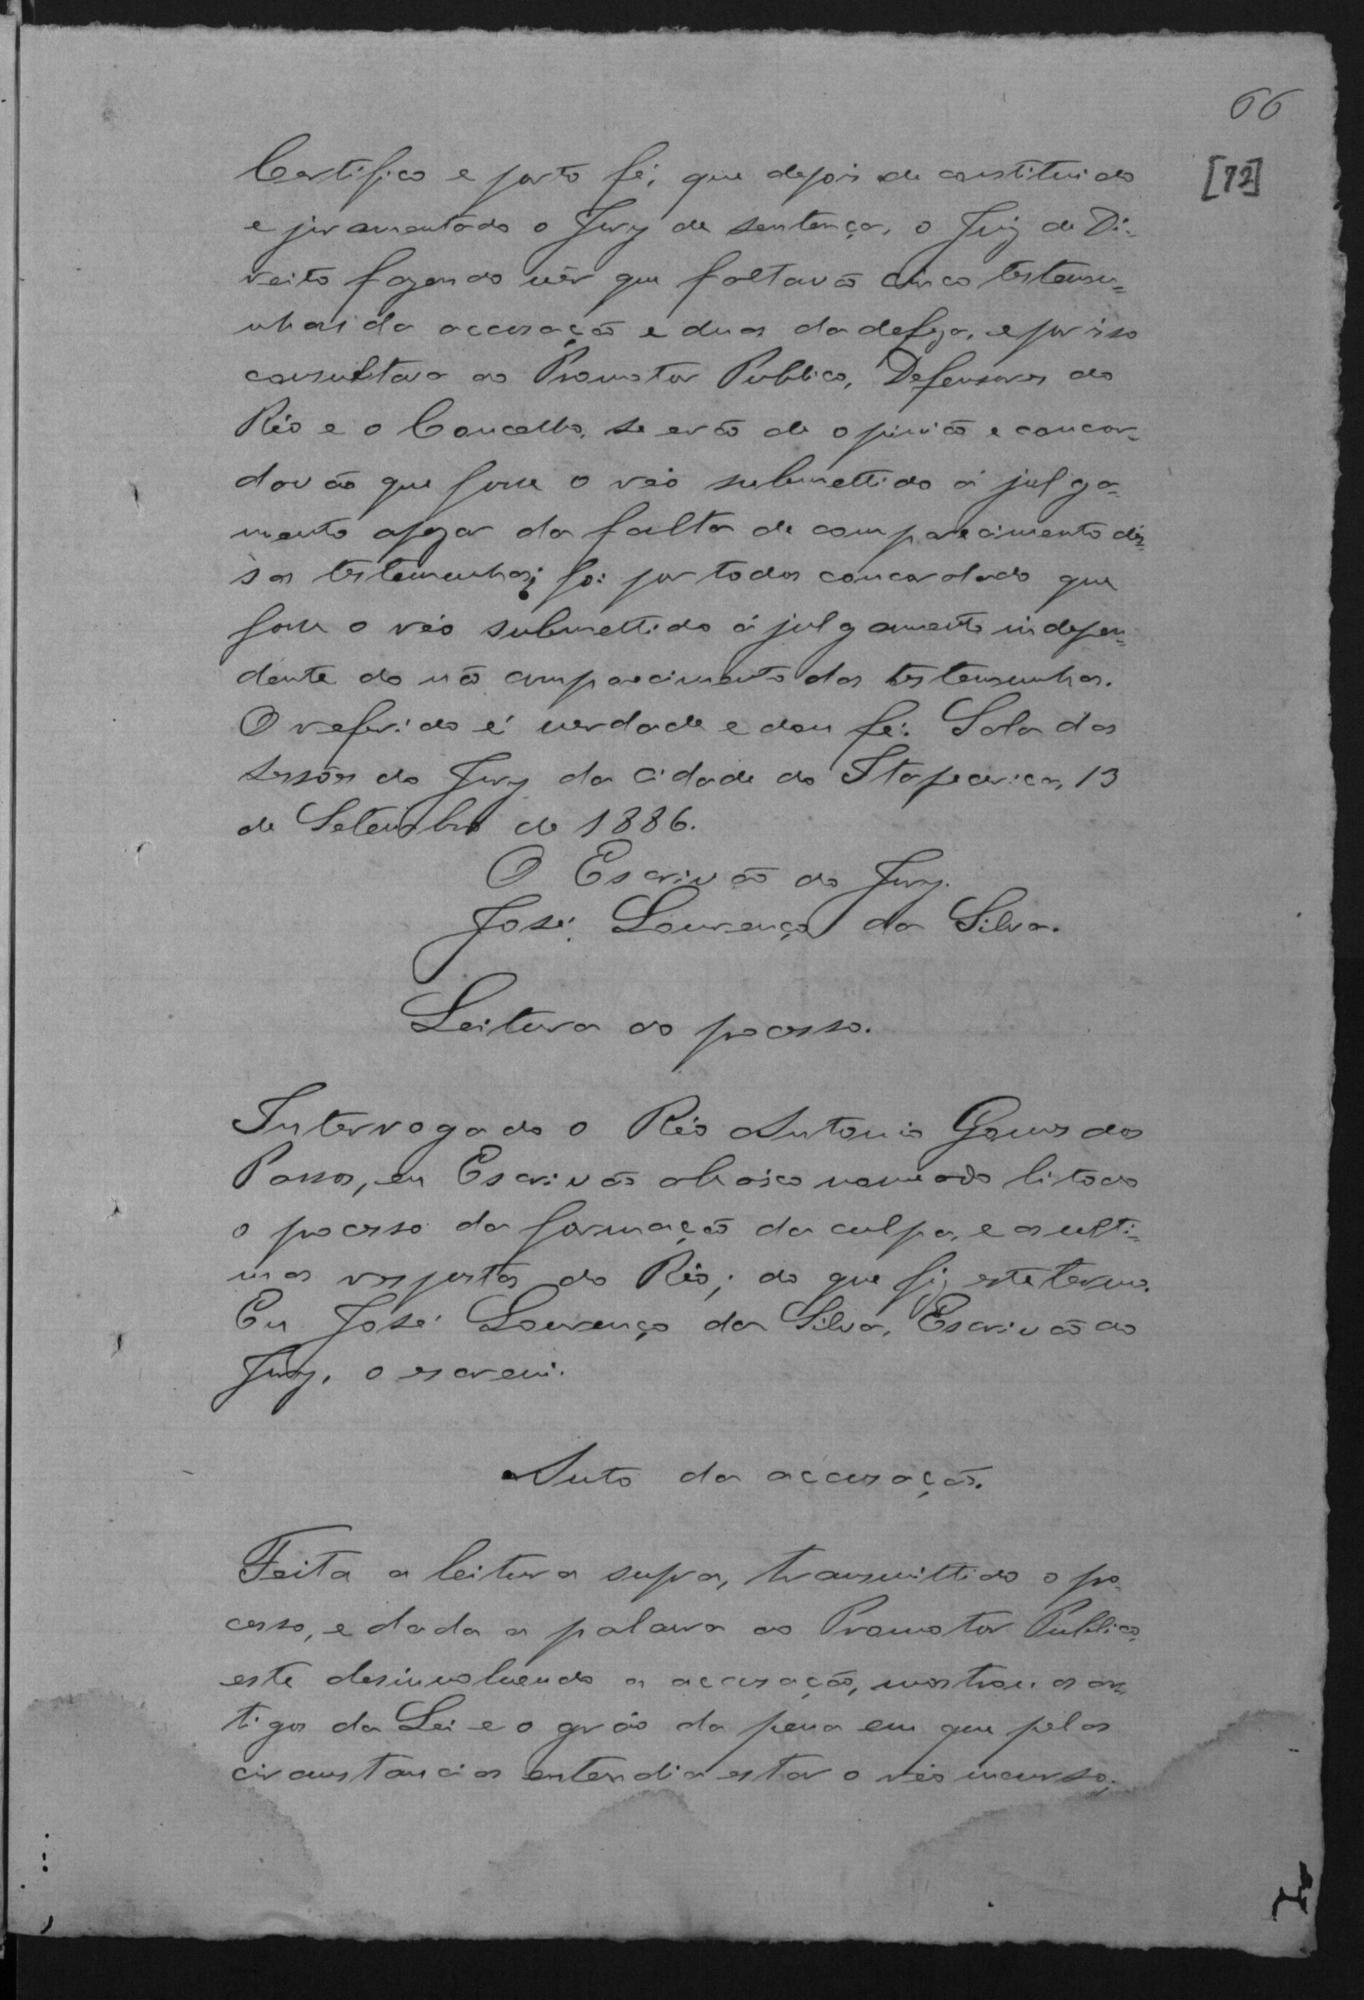 66
[72]
Certifico e porto fé, que depois de constituido
e juramentado o Jury de sentença, o Juiz de Di-
reito fazendo vêr que faltavão cinco testemu-
nhas da accusação e duas da defeza, e por isso
consultava ao Promotor Publico, Defensores do
Réo e o Concelho, se erão de opinião e concor-
davão que fosse o réo submettido á julga-
mento apezar da falta de comparecimento des-
sas testemunhas; foi por todos concordado que
fosse o réo submettido á julgamento indepen-
dente do não comparecimento das testemunhas.
O referido é verdade e dou fé. Sala das
sessões do Jury da cidade do Itapecerica, 13
de Setembro de 1886.
O Escrivão do Jury.
José Lourenço da Silva.
Leitura do processo.
Interrogado o Réo Antonio Gomes dos
Passos, eu Escrivão abaixo nomeado li todo
o processo da formação da culpa, e as ulti-
mas respostas do Réo; do que fiz este termo.
Eu José Lourenço da Silva, Escrivão do
Jury, o escrevi.
Auto da accusação.
Feita a leitura supra, transmittido o pro-
cesso, e dada a palavra ao Promotor Publico,
este desinvolvendo a accusação, mostrou os ar-
tigos da Lei e o gráo da pena em que pelas
circumstancias entendia estar o réo incurso;